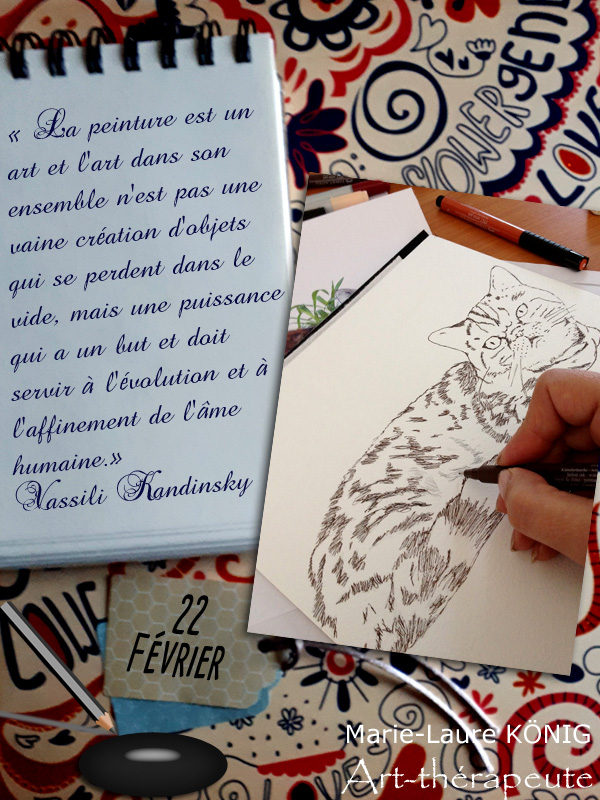 « La peinture est un
art et l'art dans son
ensemble n'est pas une
vaine création d'objets
qui se perdent dans le
vide, mais une puissance
qui a un but et doit
servir à l'évolution et à
l'affinement de l'âme
humaine.»
Vassili Kandinsky
FLOWER
LOVE
22
FÉVRIER
Marie-Laure KÖNIG
Art-thérapeute